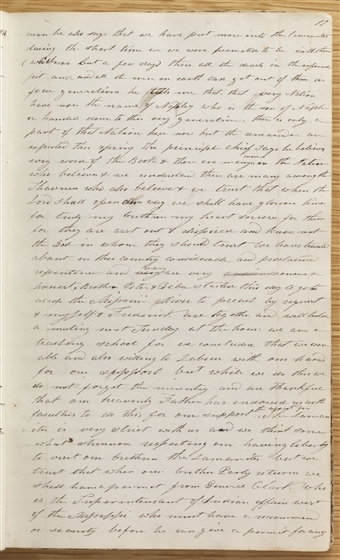 man he also says that we have put more into the lamanites
during the short time we were permitted to be in there
(which was but a few days) then all the devels in the infernal
pit and and all the men on earth can get out of them in
four generations he tells me that that every Nation
have now the name of Nephy who is the son of Nephi
& handed down to this very generation, there is only a
part of this Nation here now but the remainder are
expected this spring the principle chief says he believes
every word of the Book & there are many in the Nation
who believe & we understand there are many among the
Shawnees who also believe & we trust that when the
Lord shall open our way we shall have glorious times
for truly my brethren my heart sorrows for them
for they are cast out & dispised and know not
the God in whom they should trust we have traveled
about in this country considerable and proclaim
repentance and are very earnest &
honest, Brother Peter & Oliver started this day to go to
across the Missouri River to preach by request
& myself & Frederick are together and will hold
a meeting next Sunday at the house we are a
teaching school for we concluded that we were
able and also willing to Labour with our hands
for our support but while we do this we
do not forget the ministry and are thankful
that our heavenly Father has endowed us with
faculties to do this for our support the agent for the Laman
ites is very strict with us and we think some
what strenuous respecting our having liberty
to visit our brethren the Lamanites but we
trust that when our brother Parly returns we
shall have a permit from General Clark who
is the Superintendent of Indian affairs west
of the Missisippi who must have a recommen
or security before he can give a permit for any